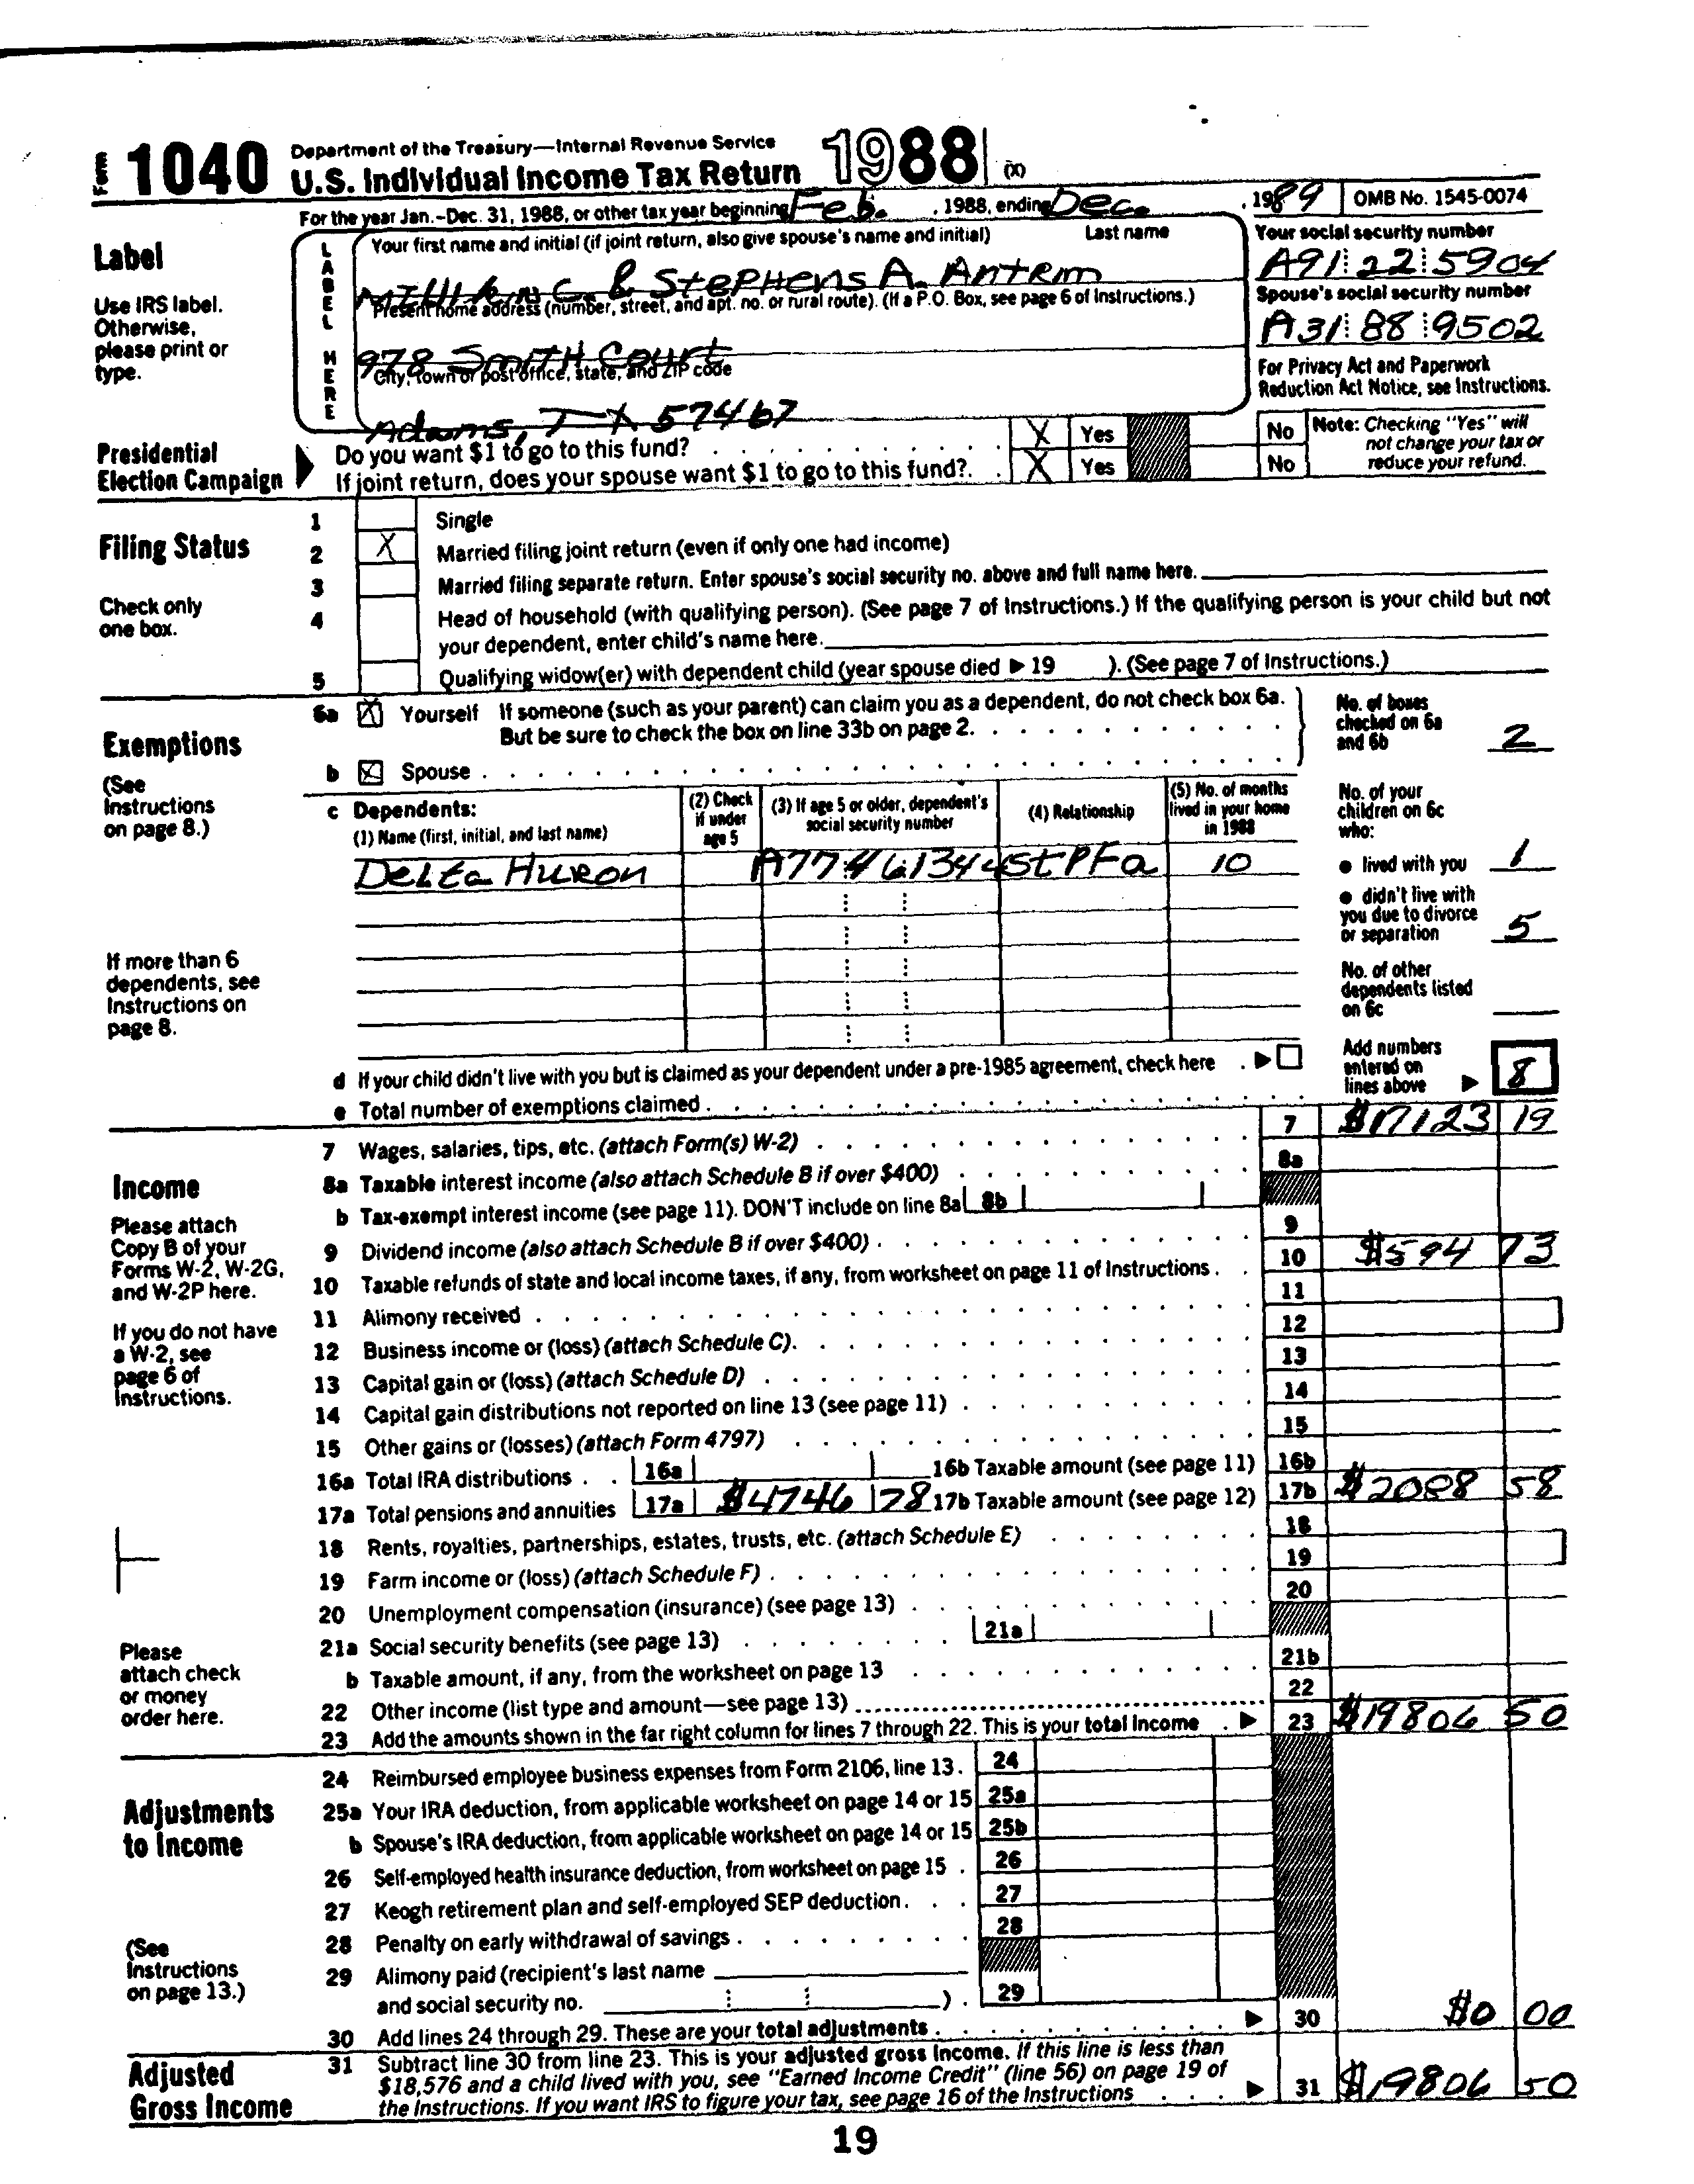 Form 1040 Department of the Treasury—Internal Revenue Service
U.S. Individual Income Tax Return 1988 (X)
For the year Jan.-Dec. 31, 1988, or other tax year beginning Feb. , 1988, ending Dec. , 1989 OMB No. 1545-0074
Label
Use IRS label.
Otherwise,
please print or
type.
LABEL HERE
Your first name and initial (if joint return, also give spouse's name and initial) Last name
Millikin C. & Stephens A. Antrim
Present home address (number, street, and apt. no. or rural route). (If a P.O. Box, see page 6 of Instructions.)
978 Smith Court
City, town or post office, state, and ZIP code
Adams, TX 57467
Your social security number
A91 22 5904
Spouse's social security number
A31 88 9502
For Privacy Act and Paperwork
Reduction Act Notice, see Instructions.
Presidential
Election Campaign
Do you want $1 to go to this fund? X Yes No
If joint return, does your spouse want $1 to go to this fund?. X Yes No
Note: Checking "Yes" will
not change your tax or
reduce your refund.
Filing Status
Check only
one box.
1 Single
2 X Married filing joint return (even if only one had income)
3 Married filing separate return. Enter spouse's social security no. above and full name here.
4 Head of household (with qualifying person). (See page 7 of Instructions.) If the qualifying person is your child but not
your dependent, enter child's name here.
5 Qualifying widow(er) with dependent child (year spouse died ▶ 19 ). (See page 7 of Instructions.)
Exemptions
(See
Instructions
on page 8.)
6a X Yourself If someone (such as your parent) can claim you as a dependent, do not check box 6a.
But be sure to check the box on line 33b on page 2.
b X Spouse
No. of boxes
checked on 6a
and 6b 2
c Dependents:
(1) Name (first, initial, and last name)
(2) Check
if under
age 5
(3) If age 5 or older, dependent's
social security number
(4) Relationship
(5) No. of months
lived in your home
in 1988
Delta Huron A77 46 1344 StPFa 10
No. of your
children on 6c
who:
● lived with you 1
● didn't live with
you due to divorce
or separation 5
No. of other
dependents listed
on 6c
If more than 6
dependents, see
Instructions on
page 8.
d If your child didn't live with you but is claimed as your dependent under a pre-1985 agreement, check here ▶
e Total number of exemptions claimed
Add numbers
entered on
lines above ▶ 8
Income
Please attach
Copy B of your
Forms W-2, W-2G,
and W-2P here.
If you do not have
a W-2, see
page 6 of
Instructions.
Please
attach check
or money
order here.
7 Wages, salaries, tips, etc. (attach Form(s) W-2) 7 $17123 19
8a Taxable interest income (also attach Schedule B if over $400) 8a
b Tax-exempt interest income (see page 11). DON'T include on line 8a 8b
9 Dividend income (also attach Schedule B if over $400) 9
10 Taxable refunds of state and local income taxes, if any, from worksheet on page 11 of Instructions. 10 $594 73
11 Alimony received 11
12 Business income or (loss) (attach Schedule C). 12
13 Capital gain or (loss) (attach Schedule D) 13
14 Capital gain distributions not reported on line 13 (see page 11) 14
15 Other gains or (losses) (attach Form 4797) 15
16a Total IRA distributions 16a 16b Taxable amount (see page 11) 16b
17a Total pensions and annuities 17a $4746 78 17b Taxable amount (see page 12) 17b $2088 58
18 Rents, royalties, partnerships, estates, trusts, etc. (attach Schedule E) 18
19 Farm income or (loss) (attach Schedule F) 19
20 Unemployment compensation (insurance) (see page 13) 20
21a Social security benefits (see page 13) 21a
b Taxable amount, if any, from the worksheet on page 13 21b
22 Other income (list type and amount—see page 13) 22
23 Add the amounts shown in the far right column for lines 7 through 22. This is your total income ▶ 23 $19806 50
Adjustments
to Income
(See
Instructions
on page 13.)
24 Reimbursed employee business expenses from Form 2106, line 13. 24
25a Your IRA deduction, from applicable worksheet on page 14 or 15 25a
b Spouse's IRA deduction, from applicable worksheet on page 14 or 15 25b
26 Self-employed health insurance deduction, from worksheet on page 15 26
27 Keogh retirement plan and self-employed SEP deduction 27
28 Penalty on early withdrawal of savings 28
29 Alimony paid (recipient's last name
and social security no. ) 29
30 Add lines 24 through 29. These are your total adjustments ▶ 30 $0 00
Adjusted
Gross Income
31 Subtract line 30 from line 23. This is your adjusted gross income. If this line is less than
$18,576 and a child lived with you, see "Earned Income Credit" (line 56) on page 19 of
the Instructions. If you want IRS to figure your tax, see page 16 of the Instructions ▶ 31 $19806 50
19